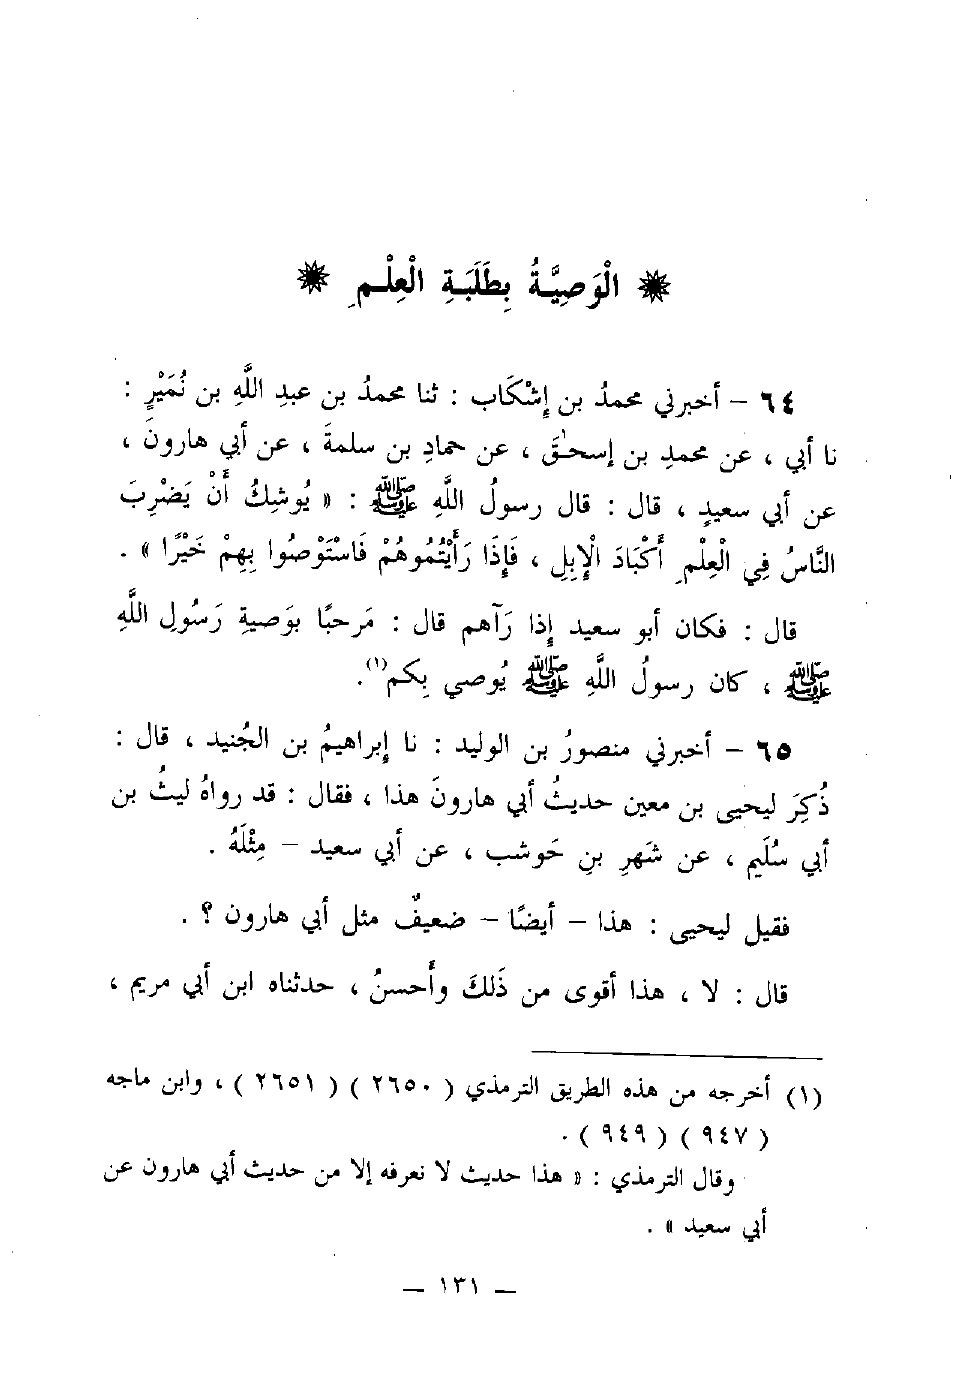 الْوَصِيَّةُ بِطَلَبَةِ الْعِلْمِ
٦٤ – أخبرني محمدُ بن إِشْكَاب : ثنا محمدُ بن عبدِ اللَّهِ بن نُمَيْرٍ :
نا أبي ، عن محمدِ بن إسحـٰقَ ، عن حمادِ بن سلمةَ ، عن أبي هارونَ ،
عن أبي سعيدٍ ، قال : قال رسولُ اللَّهِ ﷺ : « يُوشِكُ أَنْ يَضْرِبَ
النَّاسُ فِي الْعِلْمِ أَكْبَادَ الْإِبِلِ ، فَإِذَا رَأَيْتُمُوهُمْ فَاسْتَوْصُوا بِهِمْ خَيْرًا » .
قال : فكان أبو سعيد إِذا رَآهم قال : مَرحبًا بوَصيةِ رَسُولِ اللَّهِ
ﷺ ، كان رسولُ اللَّهِ ﷺ يُوصي بِكم(١).
٦٥ – أخبرني منصورُ بن الوليد : نا إِبراهيمُ بن الجُنيد ، قال :
ذُكِرَ ليحيى بن معين حديثُ أبي هارونَ هذا ، فقال : قد رواهُ ليثُ بن
أبي سُلَيم ، عن شَهرِ بنِ حَوشب ، عن أبي سعيد – مِثْلَهُ .
فقيل ليحيى : هذا – أيضًا – ضعيفٌ مثل أبي هارون ؟ .
قال : لا ، هذا أقوى من ذَلكَ وأَحسنُ ، حدثناه ابن أبي مريم ،
(١) أخرجه من هذه الطريق الترمذي ( ٢٦٥٠ ) ( ٢٦٥١ ) ، وابن ماجه
( ٩٤٧ ) ( ٩٤٩ ) .
وقال الترمذي : « هذا حديث لا نعرفه إلا من حديث أبي هارون عن
أبي سعيد » .
– ١٣١ –